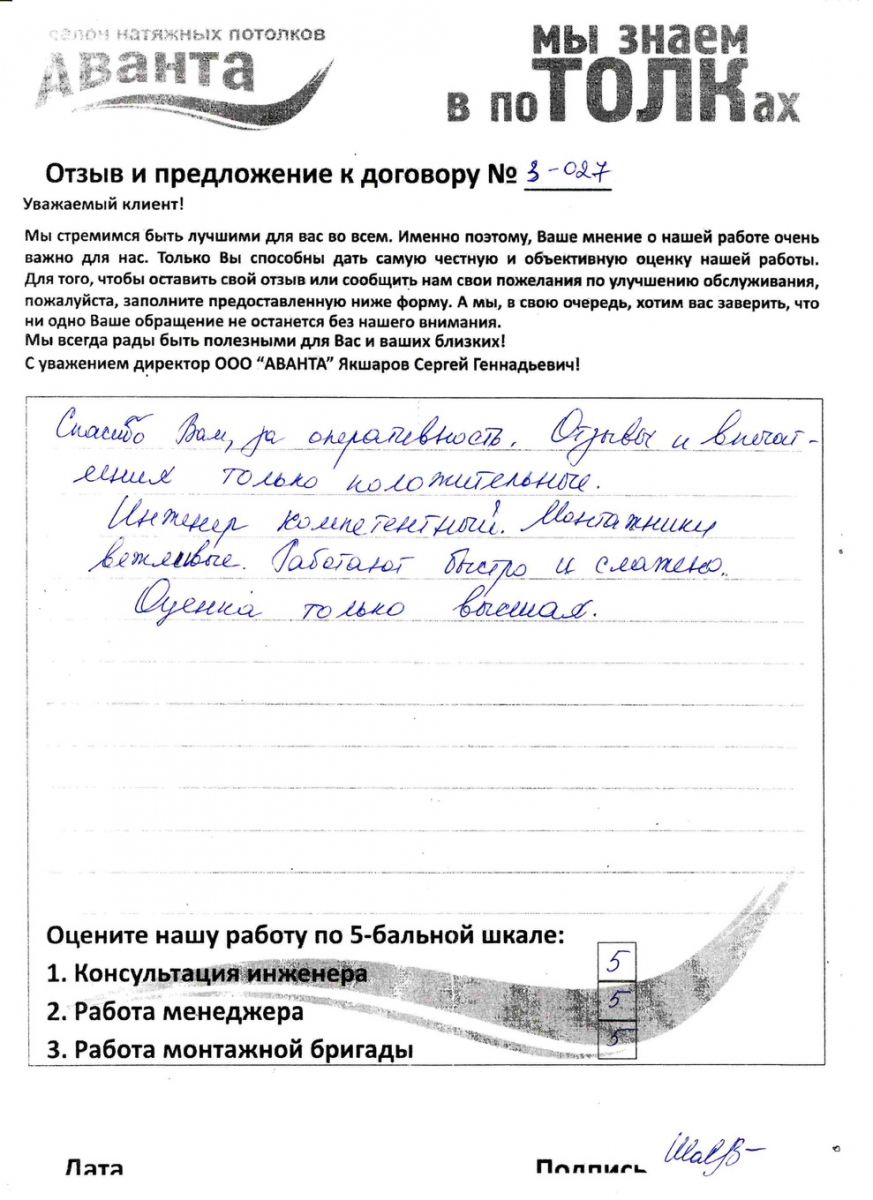 салон натяжных потолков
Аванта
мы знаем
в поТОЛКах
Отзыв и предложение к договору № 3-027
Уважаемый клиент!
Мы стремимся быть лучшими для вас во всем. Именно поэтому, Ваше мнение о нашей работе очень
важно для нас. Только Вы способны дать самую честную и объективную оценку нашей работы.
Для того, чтобы оставить свой отзыв или сообщить нам свои пожелания по улучшению обслуживания,
пожалуйста, заполните предоставленную ниже форму. А мы, в свою очередь, хотим вас заверить, что
ни одно Ваше обращение не останется без нашего внимания.
Мы всегда рады быть полезными для Вас и ваших близких!
С уважением директор ООО “АВАНТА” Якшаров Сергей Геннадьевич!
Спасибо Вам, за оперативность. Отзывы и впечат-
ления только положительные.
Инженер компетентный. Монтажники
вежливые. Работают быстро и слажено.
Оценка только высшая.
Оцените нашу работу по 5-бальной шкале:
1. Консультация инженера 5
2. Работа менеджера 5
3. Работа монтажной бригады 5
Дата Подпись